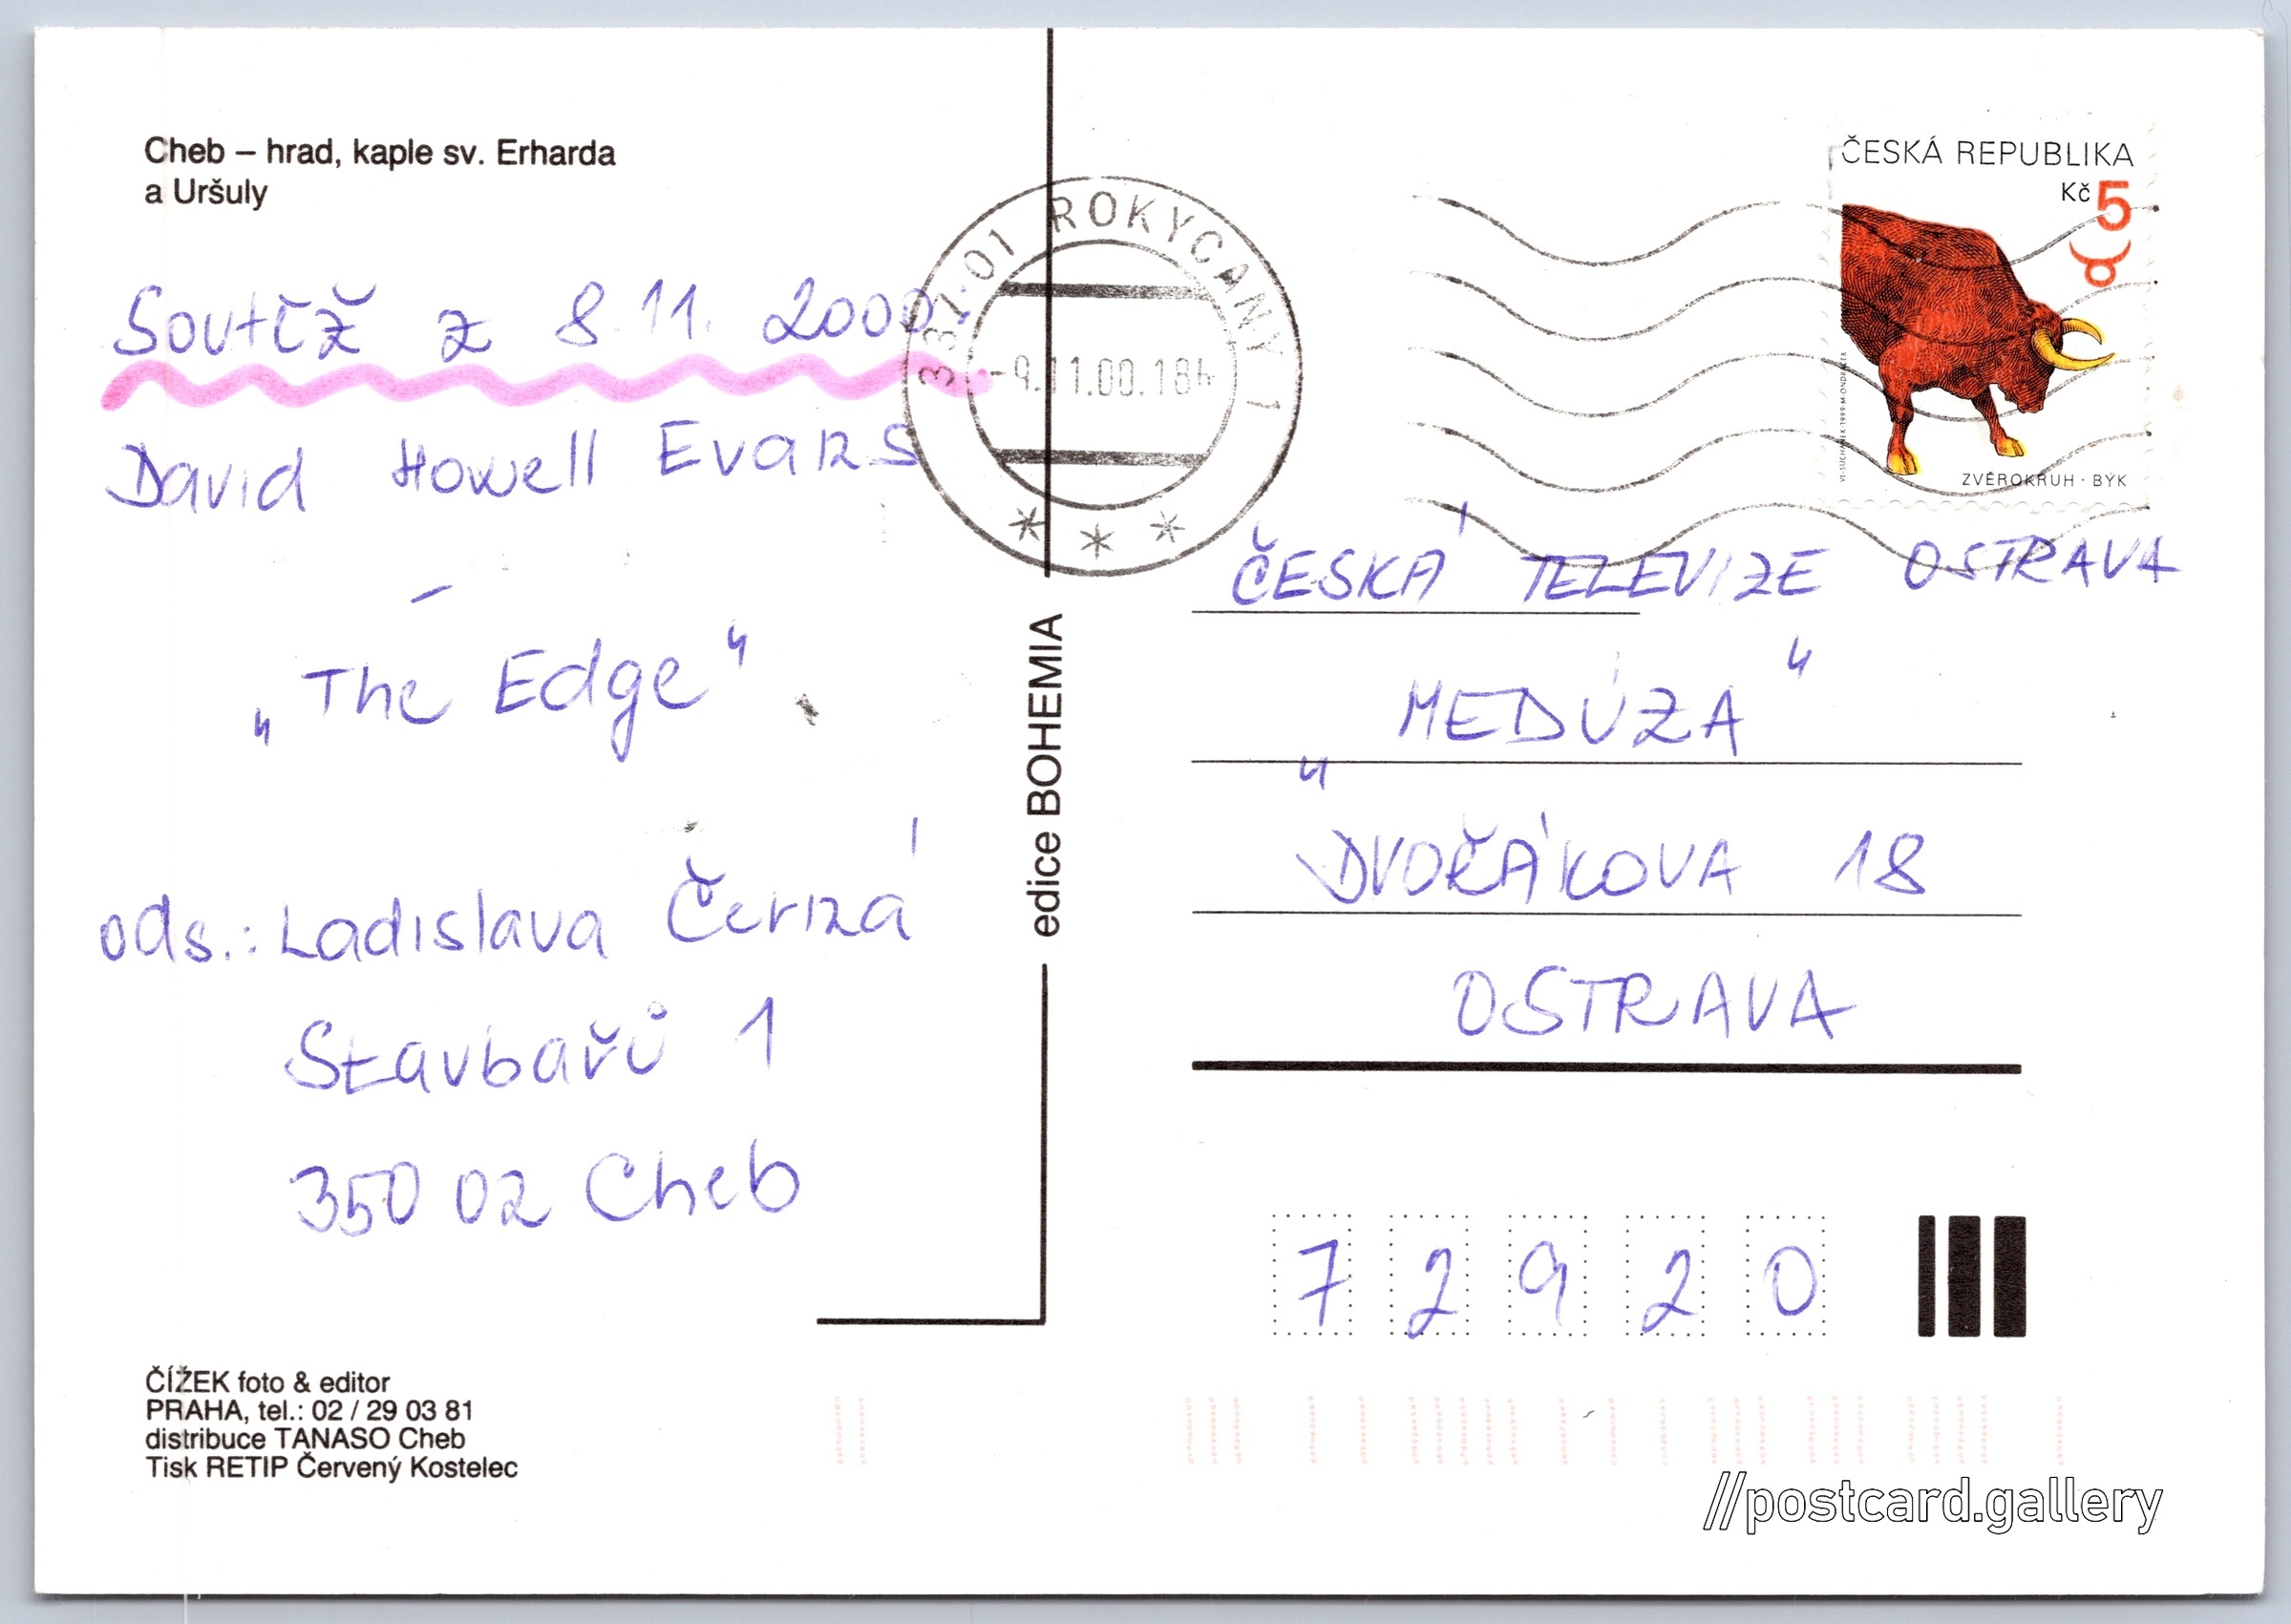 Cheb – hrad, kaple sv. Erharda
a Uršuly
Soutěž z 8.11. 2000:
David Howell Evans
–
„The Edge"
ods.: Ladislava Černá
Stavbařů 1
350 02 Cheb
ČÍŽEK foto & editor
PRAHA, tel.: 02 / 29 03 81
distribuce TANASO Cheb
Tisk RETIP Červený Kostelec
edice BOHEMIA
331 01 ROKYCANY 1
-9.11.00.18h
ČESKÁ REPUBLIKA
Kč 5
ZVĚROKRUH · BÝK
ČESKÁ TELEVIZE OSTRAVA
„MEDÚZA"
DVOŘÁKOVA 18
OSTRAVA
72920
//postcard.gallery